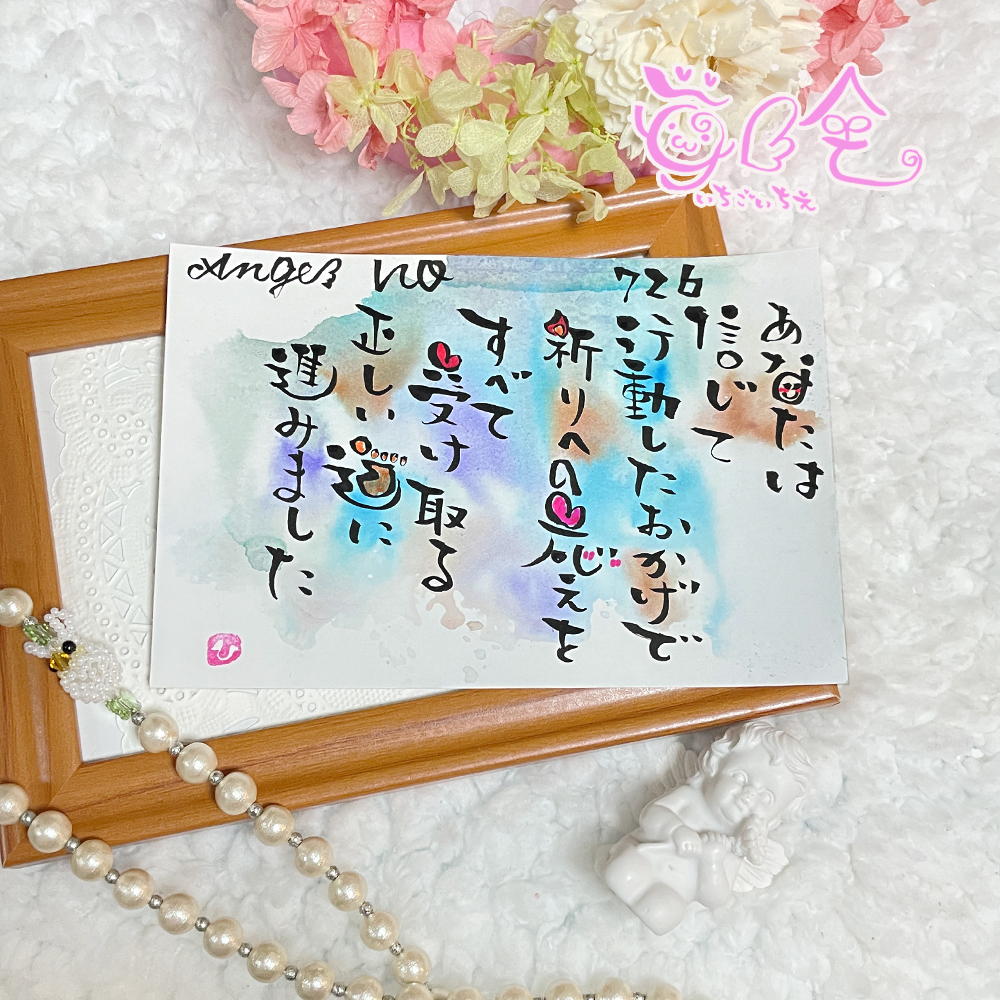 Angel NO
726
あなたは
信じて
行動したおかげで
祈りへの応えを
すべて
受け取る
正しい道に
進みました
いちごいちえ